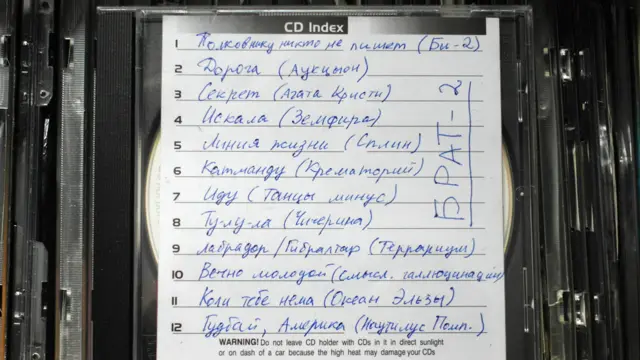 CD Index
1 Полковнику никто не пишет (Би-2)
2 Дорога (Аукцыон)
3 Секрет (Агата Кристи)
4 Искала (Земфира)
5 Линия жизни (Сплин)
6 Катманду (Крематорий)
7 Иду (Танцы минус)
8 Ту-лу-ла (Чичерина)
9 Лабрадор/Гибралтар (Террариум)
10 Вечно молодой (Смысл. галлюцинаций)
11 Коли тебе нема (Океан Эльзы)
12 Гудбай, Америка (Наутилус Помп.)
БРАТ-2
WARNING! Do not leave CD holder with CDs in it in direct sunlight
or on dash of a car because the high heat may damage your CDs